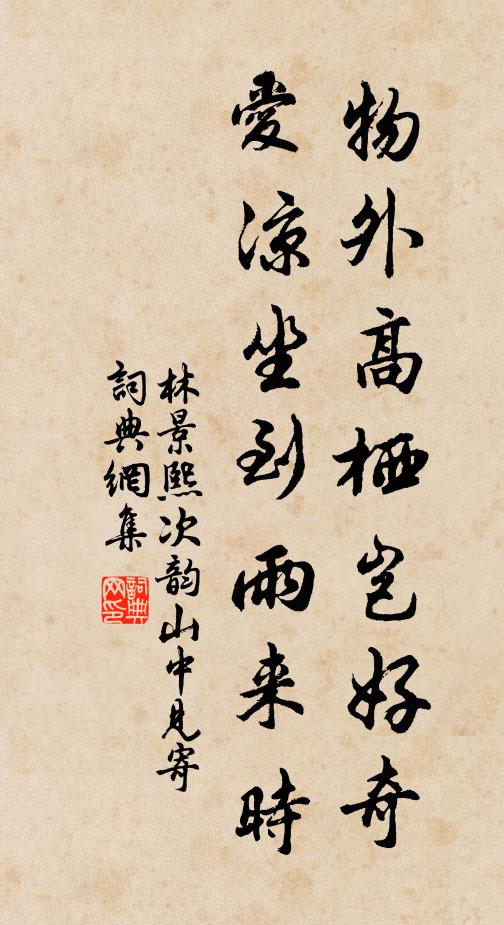 物外高栖岂好奇
愛涼坐到雨来時
林景熙次韵山中見寄
詞典網集
詞典
网印